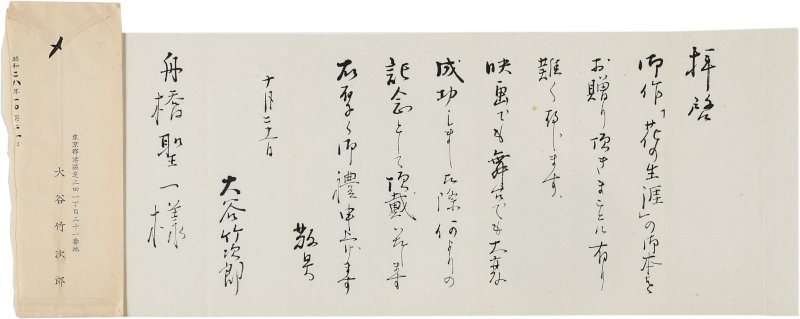 拝啓
御作「花の生涯」の御本を
お贈り頂きまことに有り
難く存じます、
映画でも舞台でも大変な
成功しました際何よりの
記念として頂戴いたします
右厚く御禮申上げます
敬具
十月二十一日
大谷竹次郎
舟橋聖一様
〆
昭和二八年一〇月二一日
東京都港区芝三田一丁目三十一番地
大谷竹次郎